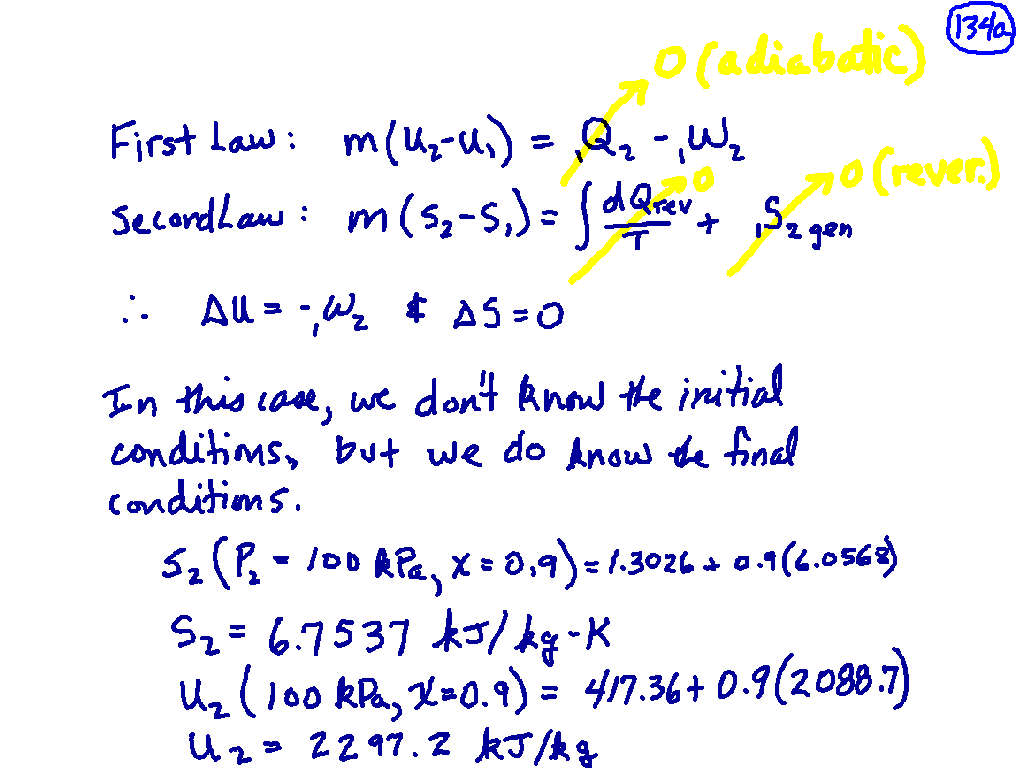 134a
0 (adiabatic)
First Law: m(u₂-u₁) = ₁Q₂ - ₁W₂
0 0 (rever.)
Second Law: m(s₂-s₁) = ∫ dQrev/T + ₁S₂ gen
∴ ΔU = -₁W₂ & ΔS = 0
In this case, we don't know the initial
conditions, but we do know the final
conditions.
S₂(P₂ = 100 kPa, x = 0.9) = 1.3026 + 0.9(6.0568)
S₂ = 6.7537 kJ/kg-K
U₂(100 kPa, x=0.9) = 417.36 + 0.9(2088.7)
U₂ = 2297.2 kJ/kg